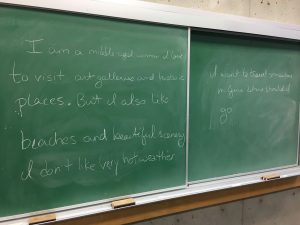 I am a middle aged woman. I love
to visit art galleries and historic
places. But I also like
beaches and beautiful scenery
I don't like very hot weather
I want to travel somewhere
in June where should I
go